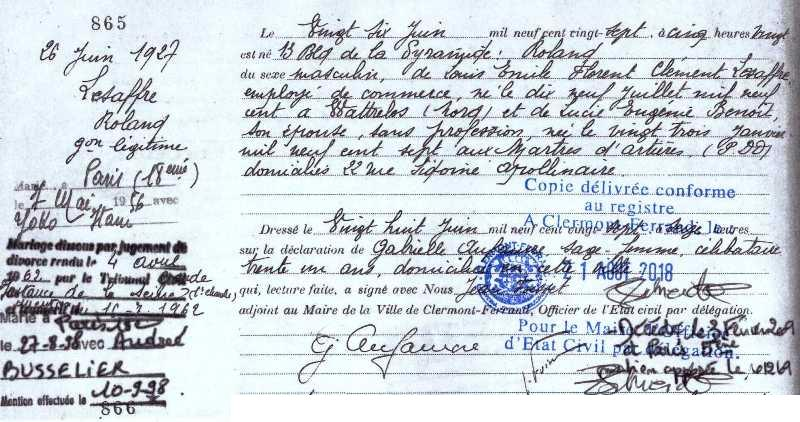 865
26 Juin 1927
Lesaffre
Roland
gon légitime
Marié à Paris (18eme)
le 7 Mai 1956 avec
Yoko Tani
Mariage dissous par jugement de
divorce rendu le 4 avril
1962 par le Tribunal
instance de la Seine
10-7-1962
Marié à
le 27-8-98 avec Andrea
BUSSELIER
Mention effectuée le 10-9-98
866
Le Vingt six Juin mil neuf cent vingt-sept, à cinq heures vingt
est né 13 Bld de la Pyramide: Roland
du sexe masculin, de Louis Emile Florent Clément Lesaffre,
employé de commerce, né le dix neuf Juillet mil neuf
cent à Wattrelos (Nord) et de Lucie Eugénie Benoit,
son épouse, sans profession, née le vingt trois Janvier
mil neuf cent sept aux Martres d'artières, (P.DD)
domiciliés 22 rue Sidoine Apollinaire.
Copie délivrée conforme
au registre
A Clermont-Ferrand le
Dressé le Vingt huit Juin mil neuf cent vingt-sept, à seize heures
sur la déclaration de Gabrielle sage femme, célibataire
trente un ans, domiciliée en cette ville
21 2018
qui, lecture faite, a signé avec Nous Jean
adjoint au Maire de la Ville de Clermont-Ferrand, Officier de l'Etat Civil par délégation.
Pour le Maire, l'Officier
d'Etat Civil par délégation.
Décédé le 3 2009
à Paris
mention apposée le